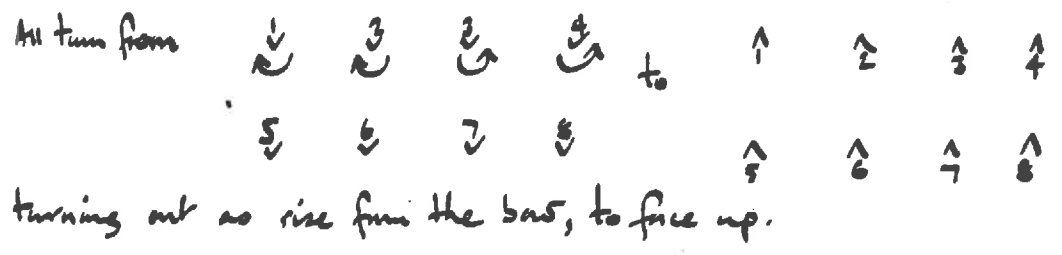 All turn from 1 2 3 4 to 1 2 3 4
5 6 7 8 5 6 7 8
turning out as rise from the bow, to face up.